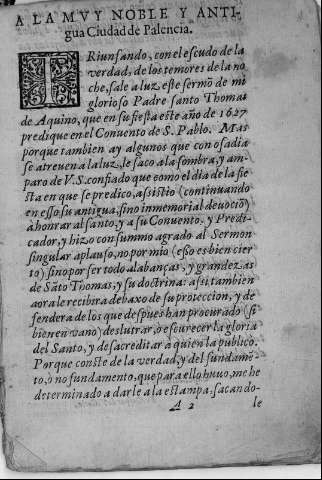 A LA MVY NOBLE Y ANTI-
gua Ciudad de Palencia.
TRiunfando, con el escudo de la
verdad, de los temores de la no
che, sale a luz, este sermō de mi
glorioso Padre santo Thomas
de Aquino, que en su fiesta este año de 1627
predique en el Convento de S. Pablo. Mas
porque tambien ay algunos que con osadia
se atreven a la luz, le saco a la sombra, y am-
paro de V.S. confiado que como el dia de la fie
sta en que se predico, assistio (continuando
en esso su antigua, sino inmemorial devociō)
à honrar al santo, y a su Convento, y Predi-
cador, y hizo con summo agrado al Sermon
singular aplauso, no por mio (esso es bien cier
to) sino por ser todo alabanças, y grandezas
de Sāto Thomas, y su doctrina: assi tambien
aora le recibira debaxo de su proteccion, y de
fendera de los que despues han procurado (si
bien en vano) deslutrar, o escurecer la gloria
del Santo, y desacreditar a quien la publico.
Porque conste de la verdad, y del fundamē
to, ò no fundamento, que para ello huvo, me he
determinado a darle a la estampa, sacando-
A 2 le